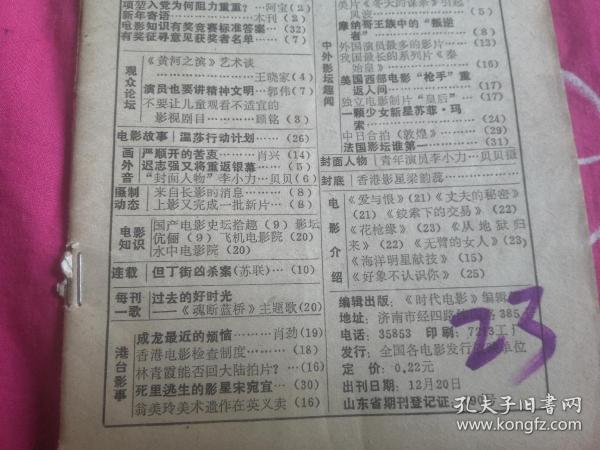 项堃入党为何阻力重重？…阿宝(2)
新年寄语…………本刊(2)
电影知识有奖竞赛标准答案…(32)
有奖征寻意见获奖者名单…(7)
观众论坛
《黄河之滨》艺术谈
……王晓家(4)
演员也要讲精神文明…郭伟(7)
不要让儿童观看不适宜的
影视剧目………顾铭(3)
电影故事
温莎行动计划……(26)
画外音
严顺开的苦衷……肖兴(14)
迟志强又将重返银幕…(5)
“封面人物”李小力…贝贝(6)
摄制动态
来自长影的消息………(8)
上影又完成一批新片…(8)
电影知识
国产电影史坛拾趣(9)影坛
伉俪(9)飞机电影院(20)
水中电影院(20)
连载
但丁街凶杀案(苏联)…(10)
每刊一歌
过去的好时光
——《魂断蓝桥》主题歌(20)
港台影事
成龙最近的烦恼……肖劲(19)
香港电影检查制度……(18)
林青霞能否回大陆拍片？…(16)
死里逃生的影星宋宛宜…(30)
翁美玲美术遗作在英义卖(16)
中外影坛趣闻
美片《冬天的谋杀》引起
风波……(5)
摩纳哥王族中的“叛逆
者”……(8)
外国演员最多的影片…(13)
我国最长的系列片《秦
始皇》……(16)
美国西部电影“枪手”重
返人间……(17)
独立电影制片“皇后”…(17)
一颗少女新星苏菲·玛
索……(24)
中日合拍《敦煌》……(29)
法国影坛谁第一……(31)
封面人物
青年演员李小力…贝贝摄
封底
香港影星梁韵蕊…
电影介绍
《爱与恨》(21)《丈夫的秘密》
(21)《绞索下的交易》(22)
《花枪缘》(23)《从地狱归
来》(22)《无臂的女人》(23)
《海洋明星献技》(15)
《好象不认识你》(25)
编辑出版：《时代电影》编辑
地址：济南市经四路
385
电话：35853 印刷：7213工厂
发行：全国各电影发行
单位
定价：0.22元
出刊日期：12月20日
山东省期刊登记证
23
孔夫子旧书网
kongfz.com